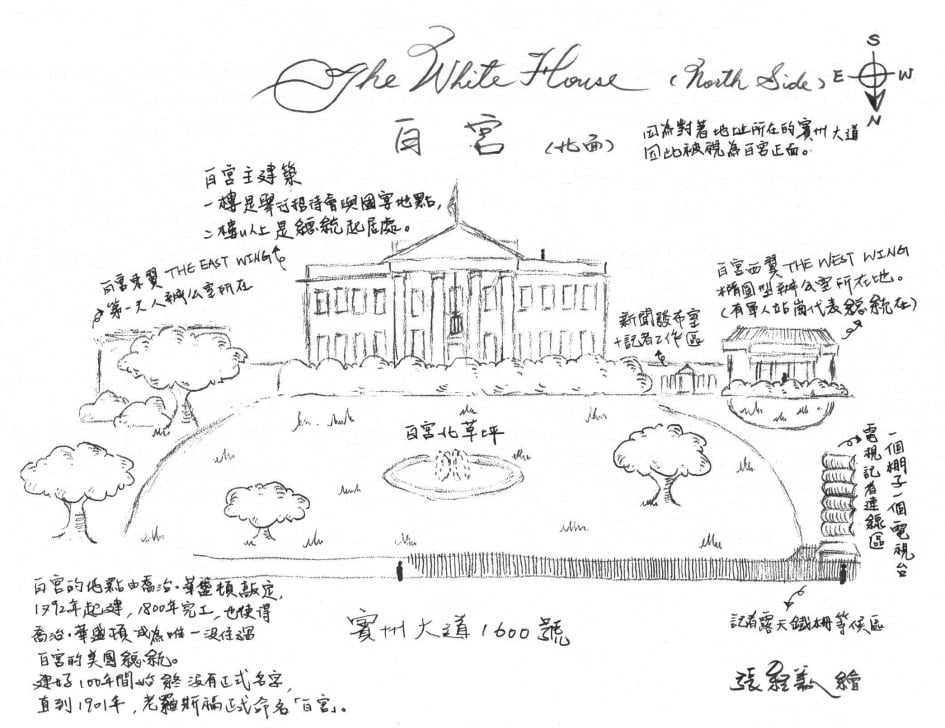 The White House (North Side)
S
E W
N
白宮 (北面)
因為對著地址所在的賓州大道
因此被視為白宮正面。
白宮主建築
一樓是舉行招待會與國宴地點,
二樓以上是總統起居處。
白宮東翼 THE EAST WING
第一夫人辦公室所在
白宮西翼 THE WEST WING
橢圓型辦公室所在地。
(有軍人站崗代表總統在)
新聞發布室
+記者工作區
白宮北草坪
一個棚子一個電視台
電視記者連線區
白宮的地點由喬治·華盛頓敲定,
1792年起建, 1800年完工, 也使得
喬治·華盛頓成為唯一沒住過
白宮的美國總統。
建好100年間始終沒有正式名字,
直到1901年, 老羅斯福正式命名「白宮」。
賓州大道1600號
記者露天鐵柵等候區
繪